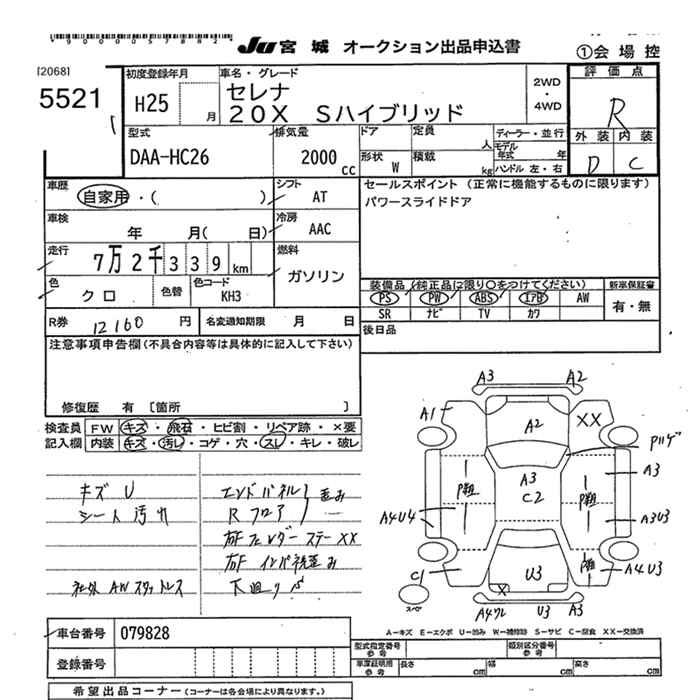 JU 宮城 オークション出品申込書
①会場控
[2068]
5521
初度登録年月
H25 月
車名・グレード
セレナ
20X Sハイブリッド
2WD
・
4WD
評価点
R
外装 内装
D C
型式
DAA-HC26
排気量
2000 cc
ドア
定員
人
形状 W
積載
kg
ディーラー・並行
モデル年式 年
ハンドル 左・右
車歴
自家用・( )
シフト
AT
車検
年 月( 日)
冷房
AAC
走行
7万2千339km
燃料
ガソリン
色
クロ
色替
色コード
KH3
R券 12160 円
名変通知期限 月 日
セールスポイント (正常に機能するものに限ります)
パワースライドドア
装備品 (純正品に限り○をつけてください)
新車保証書
PS PW ABS エアB AW
SR ナビ TV カワ
有・無
後日品
注意事項申告欄(不具合内容等は具体的に記入して下さい)
修復歴 有 [箇所 ]
検査員
記入欄
FW キズ・飛石・ヒビ割・リペア跡・×要
内装 キズ・汚し・コゲ・穴・スレ・キレ・破レ
キズ U
シート汚れ
社外AWスタットレス
エンドパネル
Rフロア
歪み
右F フェンダーステー XX
右F インパネ歪み
下廻りS
A3 A2
A1
A2
XX
A3
C2
P粗
P粗
A3
A3U3
A4U4
A4U3
C1
U3
X
スペア
U3 A3
A-キズ E-エクボ U-凹み W-補修跡 S-サビ C-腐食 XX-交換済
車台番号 079828
登録番号
型式指定番号
参考
類別区分番号
参考
車庫証明用
参考
長さ cm
幅 cm
高さ cm
希望出品コーナー (コーナーは各会場により異なります。)